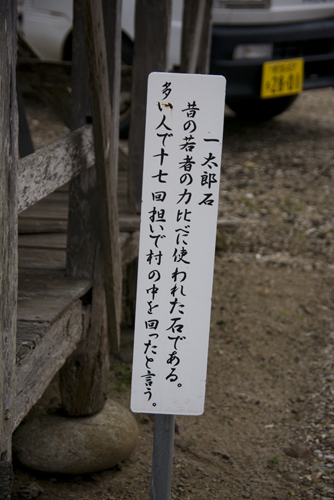 一太郎石
昔の若者の力比べに使われた石である。
多い人で十七回担いで村の中を回ったと言う。